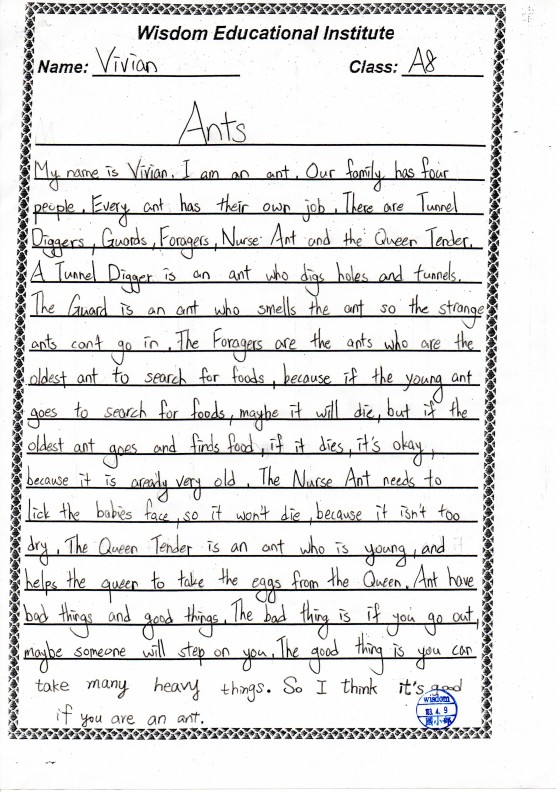 Wisdom Educational Institute
Name: Vivian Class: A8
Ants
My name is Vivian. I am an ant. Our family has four
people. Every ant has their own job. There are Tunnel
Diggers, Guards, Foragers, Nurse Ant and the Queen Tender.
A Tunnel Digger is an ant who digs holes and tunnels.
The Guard is an ant who smells the ant so the strange
ants can't go in. The Foragers are the ants who are the
oldest ant to search for foods, because if the young ant
goes to search for foods, maybe it will die, but if the
oldest ant goes and finds food, if it dies, it's okay,
because it is aready very old. The Nurse Ant needs to
lick the babies face, so it won't die, because it isn't too
dry. The Queen Tender is an ant who is young, and
helps the queen to take the eggs from the Queen. Ant have
bad things and good things. The bad thing is if you go out,
maybe someone will step on you. The good thing is you can
take many heavy things. So I think it's good
if you are an ant.
wisdom
4. 9